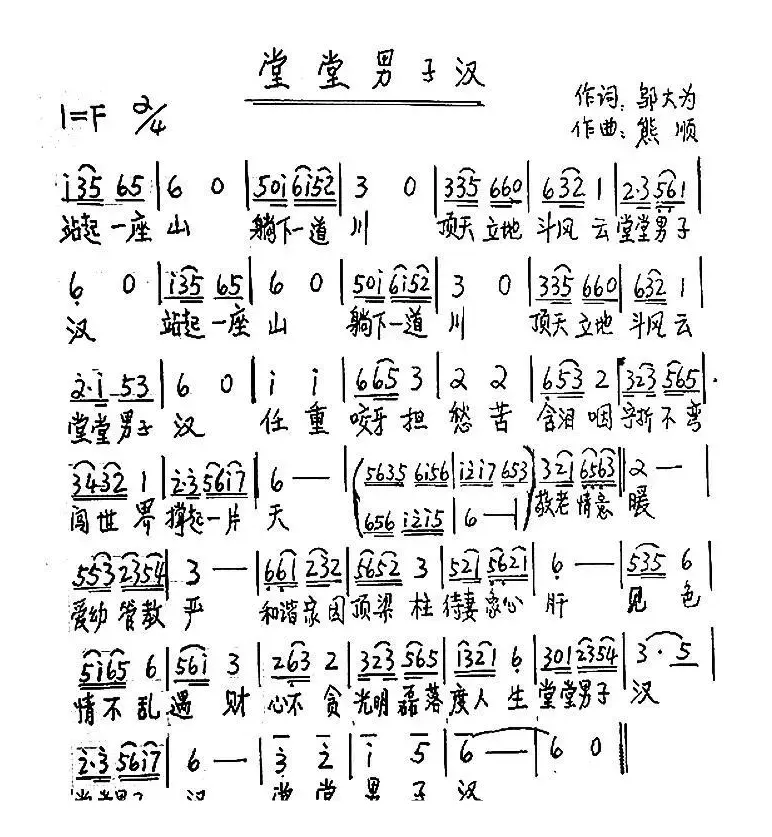 堂堂男子汉
1=F 2/4
作词:邬大为
作曲:熊 顺
i35 65 | 6 0 | 50i 6i52 | 3 0 | 335 660 | 632 1 | 2·3 561 |
站起一座山 躺下一道川 顶天立地斗风云堂堂男子
6 0 | i35 65 | 6 0 | 50i 6i52 | 3 0 | 335 660 | 632 1 |
汉 站起一座山 躺下一道川 顶天立地斗风云
2·i 53 | 6 0 | i i | 665 3 | 2 2 | 653 2 | 323 565 |
堂堂男子汉 任重 咬牙担愁苦 含泪咽 宁折不弯
3432 1 | 2·3 56i7 | 6 — | (5635 6i56 | i2i7 653 | 321 6563 || 2 — |
656 i2i5 | 6 — )
闯世界撑起一片天 敬老情意暖
553 2354 | 3 — | 661 232 | 5652 3 | 521 5621 | 6 — | 535 6 |
爱幼管教严 和谐家园顶梁柱待妻家心肝 见色
5i65 6 | 56i 3 | 263 2 | 323 565 | i321 6 | 301 2354 | 3·5 |
情不乱遇财心不贪光明磊落度人生堂堂男子汉
2·3 56i7 | 6 — | 3 2 | i 5 | 6 — | 6 0 ||
堂堂男子汉 堂堂男子汉